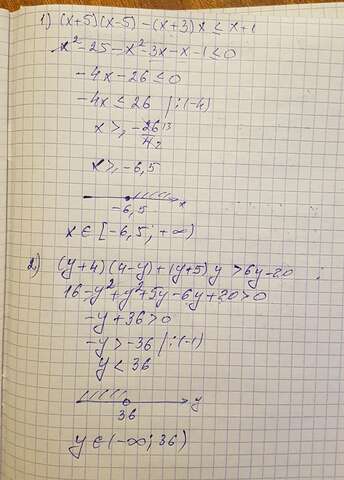 1) (x+5)(x-5) -(x+3)x ≤ x+1
x²-25-x²-3x-x-1≤0
-4x-26≤0
-4x≤26 |:(-4)
x⩾ -26/4 13 2
x⩾ -6,5
-6,5 x
x∈[-6,5; +∞)
2.) (y+4)(4-y)+(y+5)y >6y-20
16-y²+y²+5y-6y+20>0
-y+36>0
-y>-36 |:(-1)
y<36
36 y
y∈(-∞;36)